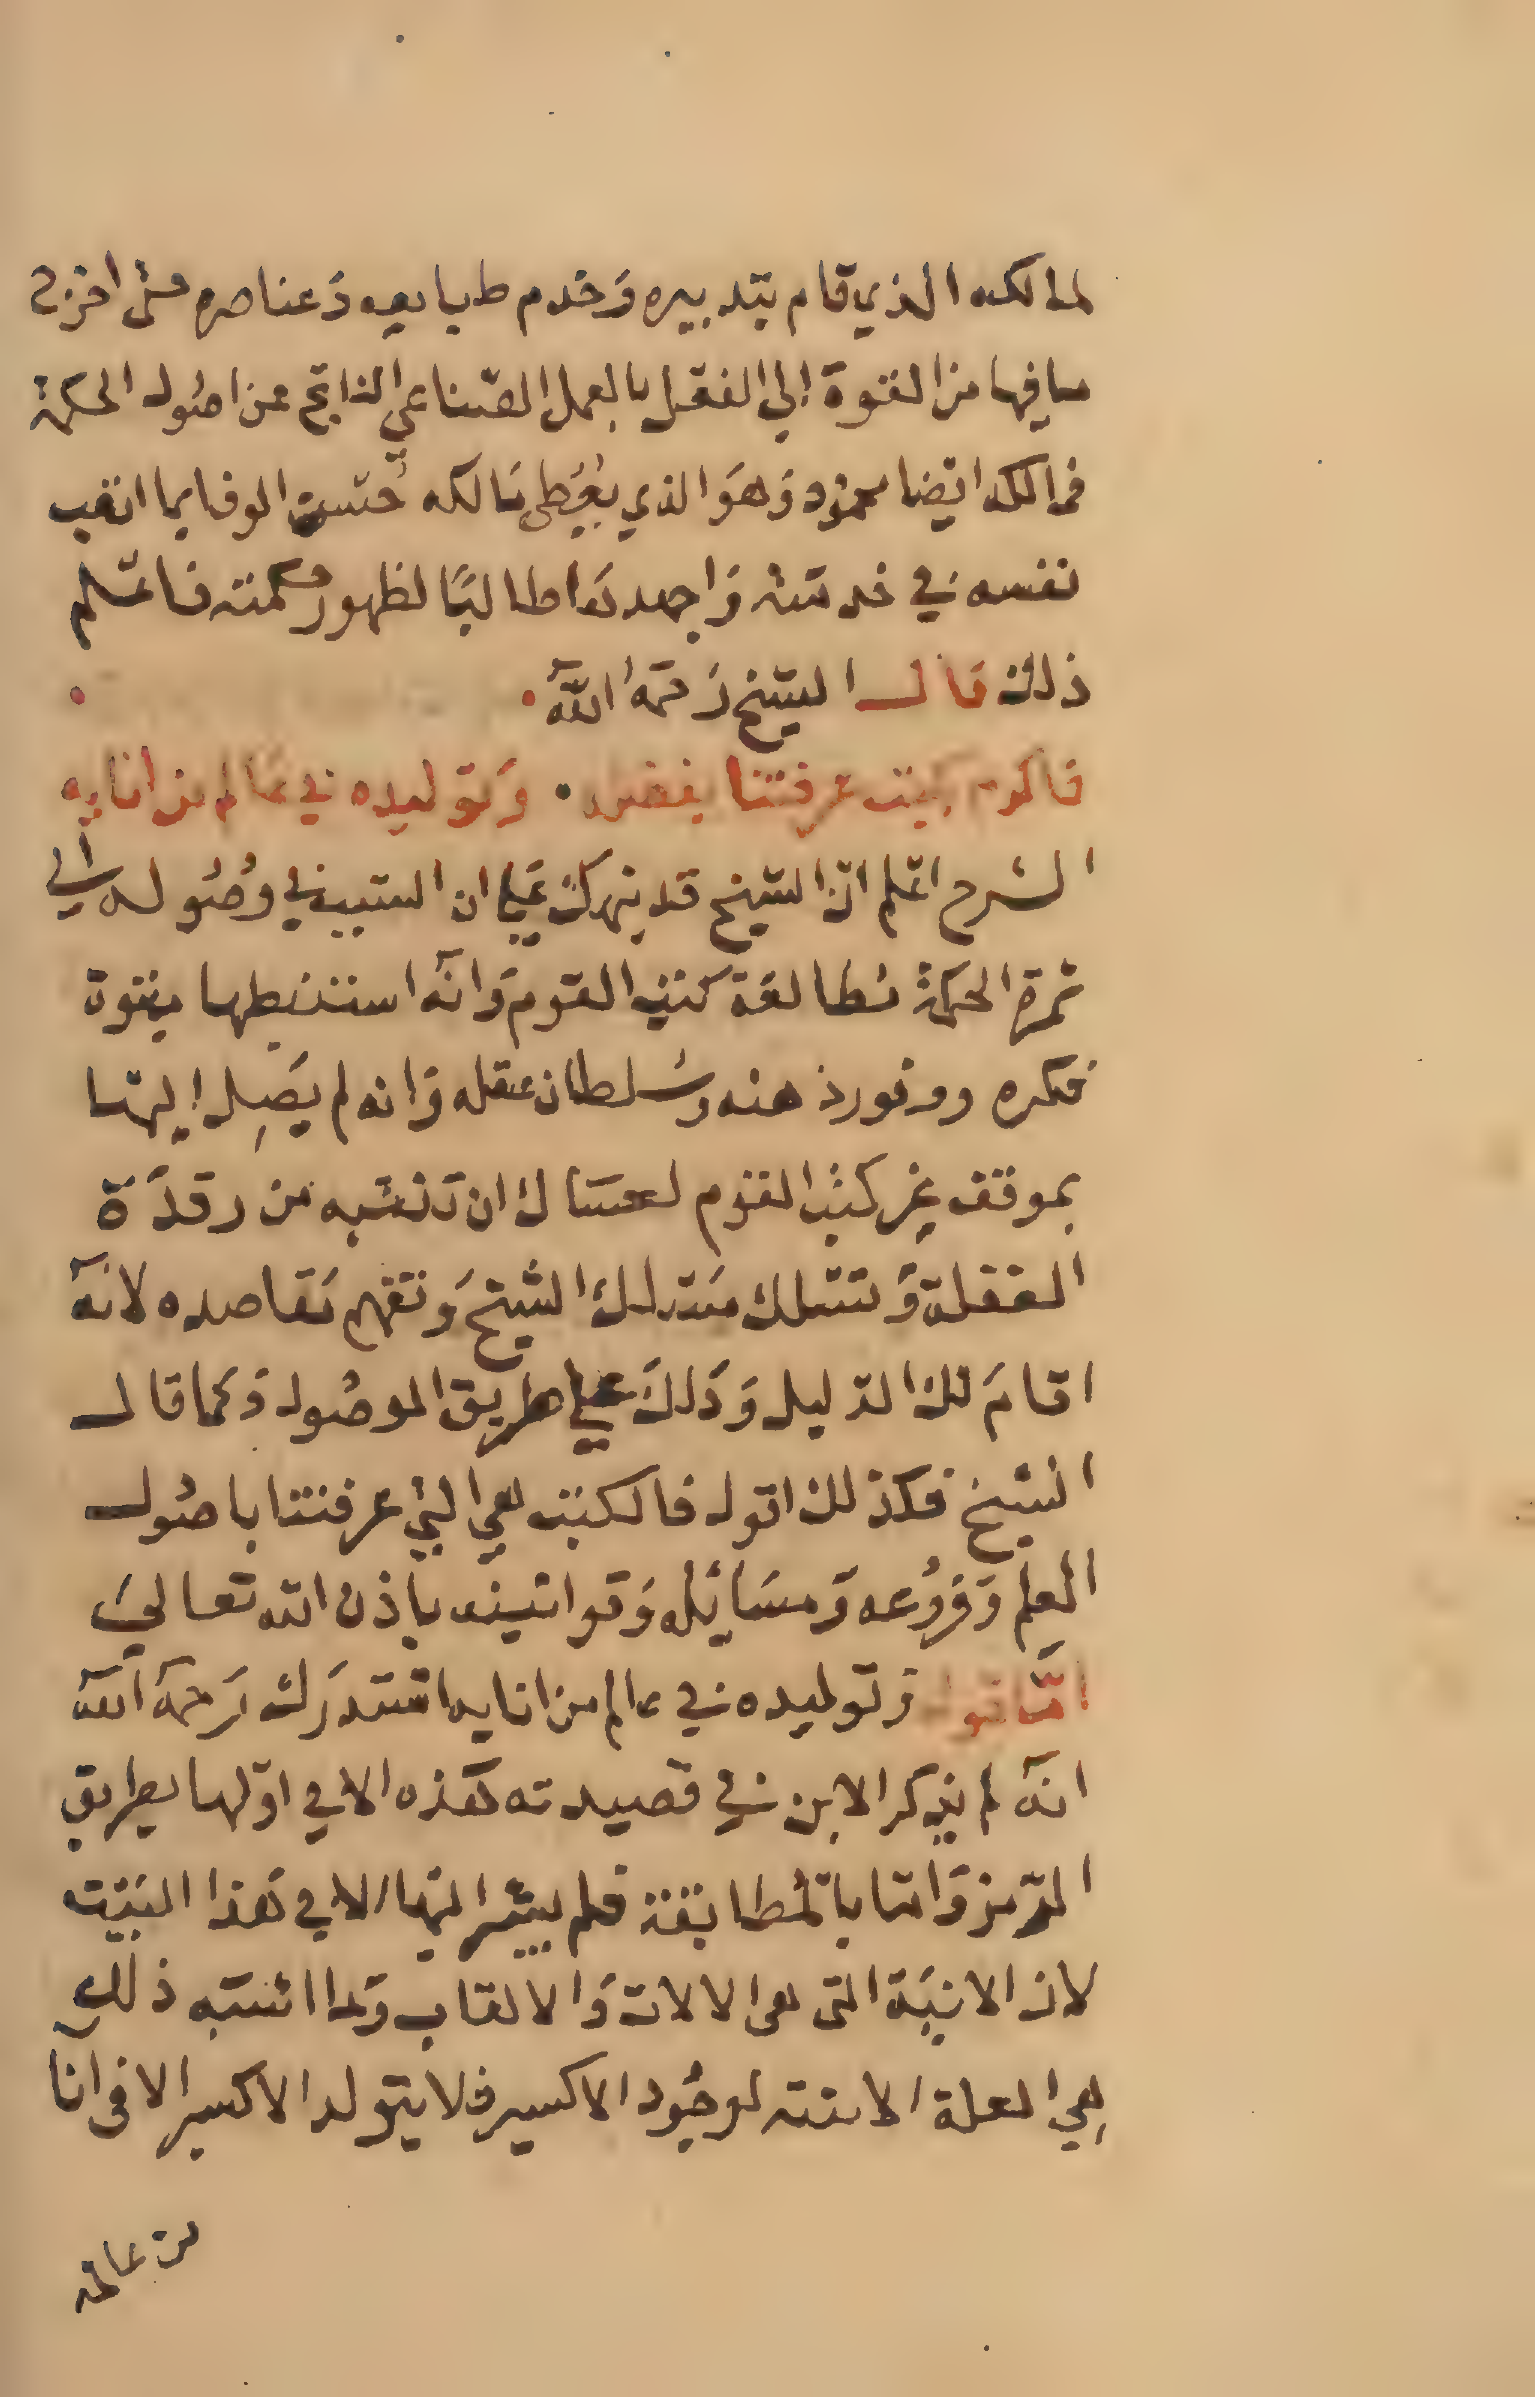 لمالكه الذي قام بتدبيره وَخدم طبايعه وَعناصره حتى اخرج
مافيها من القوة الي الفعل بالعمل الصّناعي الناتج عن اصُول الحكمة
فمالكه ايضا محمود وَهوَ الذي يُعْطى مَالكه حُسن الوفا بما اتعب
نفسه في خدمته وَاجهدهَا طالبًا لظهور حكمته فاعْلم
ذلك قال الشيخ رَحمَهُ اللهُ
فاكرم بكتب عرفتنا بفضله وَتوليده في عَالم من انايه
الشرح اعْلم انّ الشيخ قد نبهك عَلي ان السبب في وصُوله الي
ثمرة الحكمة مُطالعَة كتب القوم وَانّه استنبطها بقوة
فكره ووفور ذهنه وسُلطان عقله وَانه لم يَصِل اليها
بموقف غير كتب القوم لعسَاك ان تَنتبه من رقدَة
الغفلة وَتسْلك مسْلك الشيخ وَتفهم مَقاصده لانه
اقامَ لك الدليل وَدَلكَ علي طريق الوصُول وَكما قال
الشيخ فكذلك اقول فالكتب هي التي عرفتنا باصُول
العِلم وَفرُوعه وَمسَايله وَقوانينه باذن الله تعالىَ
امّا قوله وَتوليده في عالم من انايه اسْتدرَك رَحمَهُ الله
انّه لم يذكر الابن في قصيدته هَذه الا في اوّلها بطريق
الرّمز وَامّا بالمُطابقة فلم يشير اليهَا الا في هَذا البَيْت
لان الانيَة التى هى الالات وَالالقاب وَما اشبَه ذلك
هِي العلة لوجُود الاكسير فلا يتولد الاكسير الا فى انآ
من عالمه